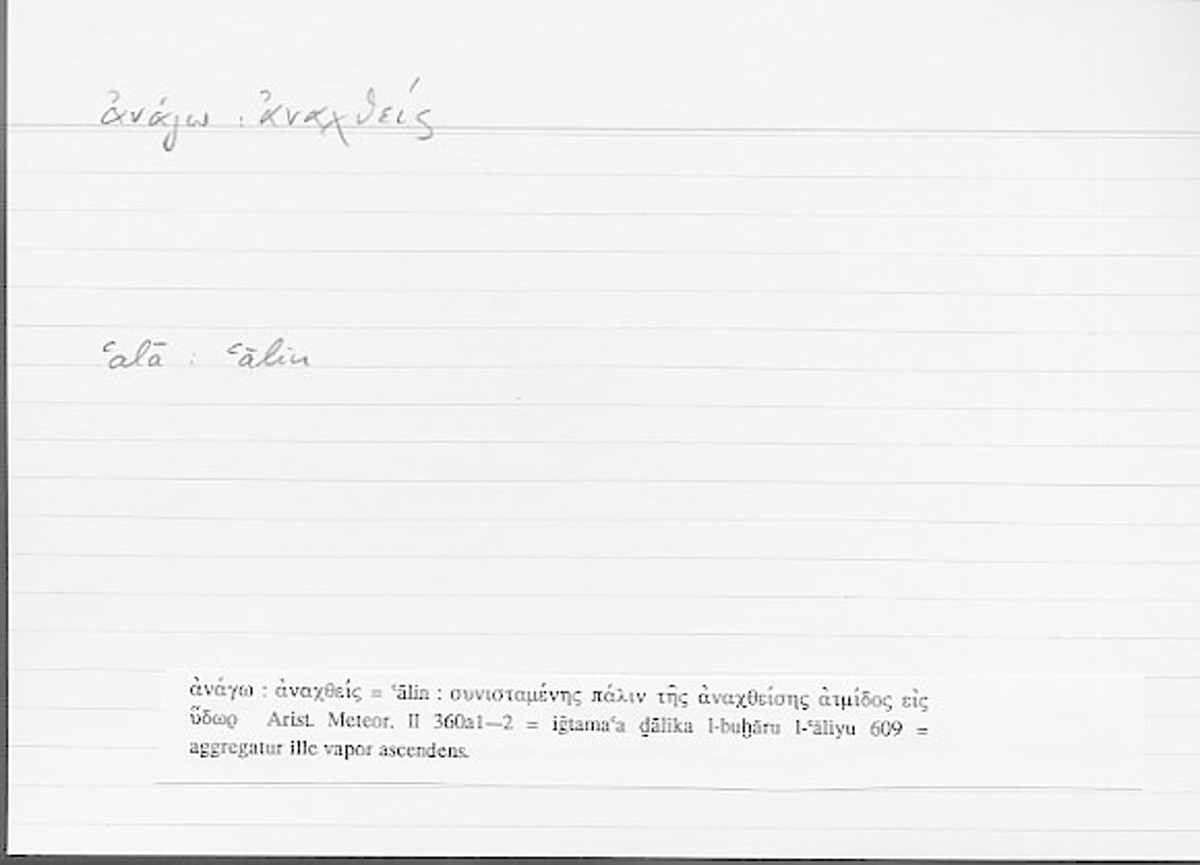 ἀνάγω : ἀναχθείς
ʿalā : ʿālin
ἀνάγω : ἀναχθείς = ʿālin : συνισταμένης πάλιν τῆς ἀναχθείσης ἀτμίδος εἰς
ὕδωρ Arist. Meteor. II 360a1—2 = iǧtamaʿa ḏālika l-buḫāru l-ʿāliyu 609 =
aggregatur ille vapor ascendens.